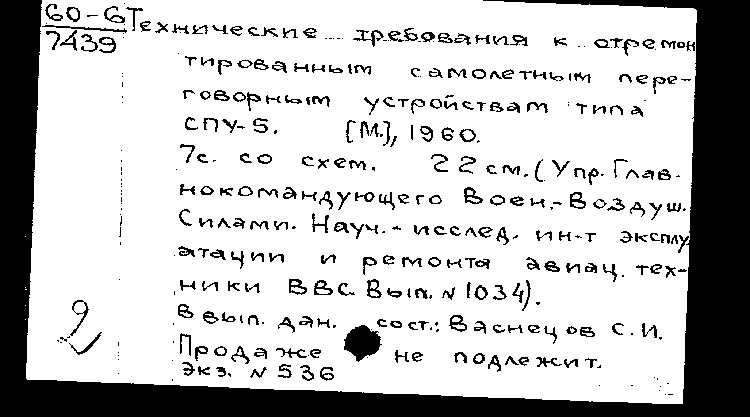 60-6 Технические требования к отремон
7439
тированным самолетным пере-
говорным устройствам типа
СПУ-5. [М.], 1960.
7с. со схем. 22 см. (Упр. Глав-
нокомандующего Воен.-Воздуш.
Силами. Науч.-исслед. ин-т эксплу
атации и ремонта авиац. тех-
ники ВВС. Вып. N 1034).
В вып. дан. сост.: Васнецов С.И.
Продаже не подлежит.
Экз. N 536
2